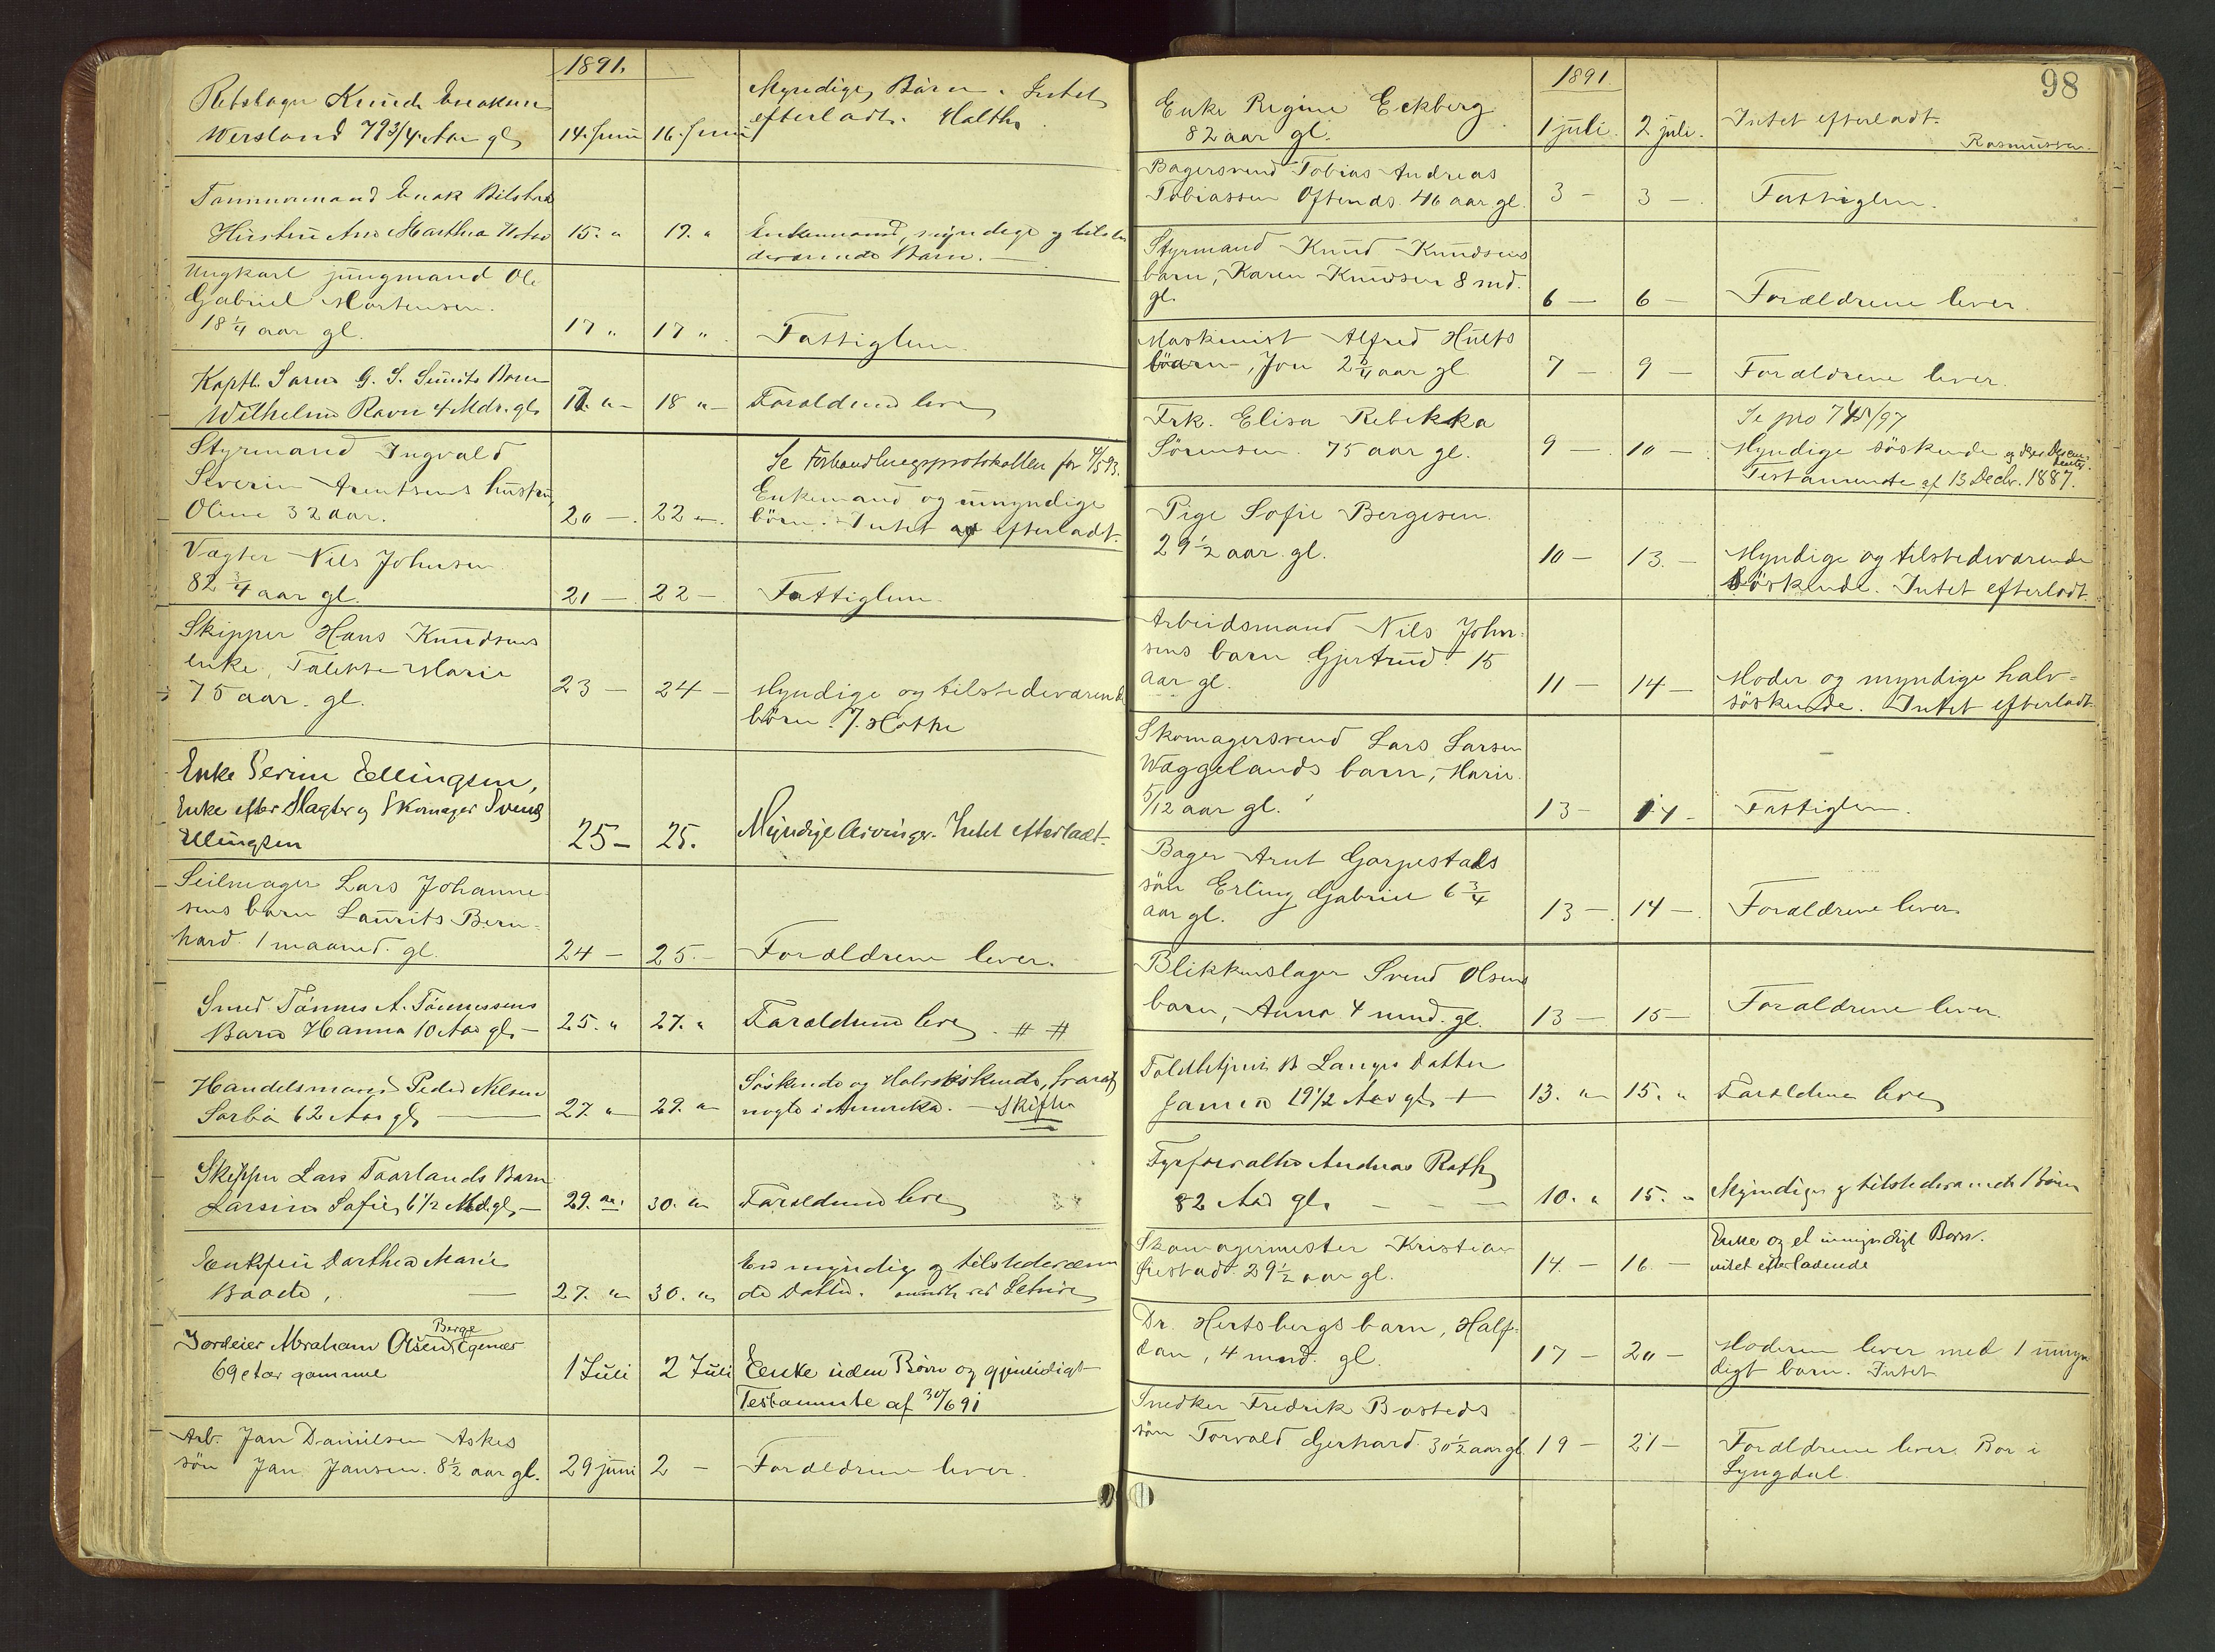 1891.
Knud
Wersland 79 3/4 Aar gl. 14. Juni 16. Juni
Myndige Børn. Intet
efterladt.
Tømmermand Enok
Hustru Ane Martha 15. " 17. "
Enkemand, myndige og tilste
deværende Børn.
Ungkarl jungmand Ole
Gabriel Mortensen.
18 1/4 aar gl. 17 " 17 " Fattiglem.
Wilhelm Ravn 4 Mdr. gl. 17. " 18 " Forældrene lever
Styrmand Ingvald
Severin Arentsens hustru
Oline 32 aar. 20 — 22 —
Se Forhandlingsprotokollen for
Enkemand og umyndige
børn. Intet efterladt.
Vægter Nils Johnsen
82 3/4 aar gl. 21 — 22 — Fattiglem
Skipper Hans Knudsens
enke, Talette Marie
75 aar. gl. 23 — 24 —
Myndige og tilstedeværende
børn.
Enke Serine Ellingsen,
Enke efter Slagter og Skomager Svend
Ellingsen 25 — 25. Myndige Arvinger. Intet efterladt.
Seilmager Lars Johanne-
sens barn Laurits Bern-
hard. 1 maaned. gl. 24 — 25 — Forældrene lever.
Smed Tönnes A. Tönnessens
Barn Hanna 10 Aar gl. — 25. " 27. " Forældrene lever # #
Handelsmand Peder Nilsen
Sørbø 62 Aar gl. 27. " 29. "
Söskende og Halvsöskende, hvoraf
nogle i Amerika. — Skifte
Skipper Lars Taarlands Barn
Larsine Sofie, 6 1/2 Md. gl. — 29. " 30. " Forældrene lever
Enkefru Dorthea Marie
Baade, — 27. " 30. "
En myndig og tilstedeværen
de Datter.
Jordeier Abraham Olsen Berge Egenæs
69 aar gammel 1 Juli 2 Juli Enke uden Børn og gjensidigt
Testamente af 30/6 91
Arb. Jan Danielsen Askes
sön Jan Jansen. 8 1/2 aar gl. 29 juni 2 — Forældrene lever.
98
1891.
Enke Regine Eckberg
82 aar gl. 1 juli. 2 juli. Intet efterladt.
Rasmussen.
Bagersvend Tobias Andreas
Tobiassen Oftends 46 aar gl. 3 — 3 — Fattiglem.
Styrmand Knud Knudsens
barn, Karen Knudsen 8 md.
gl. 6 — 6 — Forældrene lever
Maskinist Alfred Hults
barn, Jon 2 3/4 aar gl. 7 — 9 — Forældrene lever.
Frk. Elisa Rebekka
Sörensen. 75 aar gl. 9 — 10 —
Myndige söskende
Testamente af 13 Decbr. 1887.
Pige Sofie Bergesen.
29 1/2 aar gl. 10 — 13. —
Myndige og tilstedeværende
Söskende. Intet efterladt.
Arbeidsmand Nils John-
sens barn Gjertrud. 15
aar gl. 11 — 14 —
Moder og myndige halv-
söskende. Intet efterladt.
Skomagersvend Lars Larsen
Wæggelands barn, Marie
5/12 aar gl. 13 — 14 — Fattiglem.
Bager Arnt Garpestads
sön Erling Gabriel 6 3/4
aar gl. 13 — 14 — Forældrene lever.
Blikkenslager Svend Olsens
barn, Anna 4 mnd. gl. 13 — 15 — Forældrene lever.
Toldbetjent B Langes Datter
19 1/2 Aar gl. + 13. " 15. " Forældrene lever
Fyrforvalter Andreas Rath
82 Aar gl. — — — 10. " 15. " Myndige og tilstedeværende Børn
Skomagermester Kristian
29 1/2 aar gl. 14. — 16. —
Enke og et umyndigt Barn.
intet efterladende
Dr. Hertsbergs barn, Half-
dan, 4 mnd. gl. 17 — 20 —
Moderen lever med 1 umyn
digt barn. Intet
Snedker Fredrik Bosteds
sön Torvald Gerhard. 30 1/2 aar gl. 19 — 21 —
Forældrene lever. Bor i
Lyngdal.